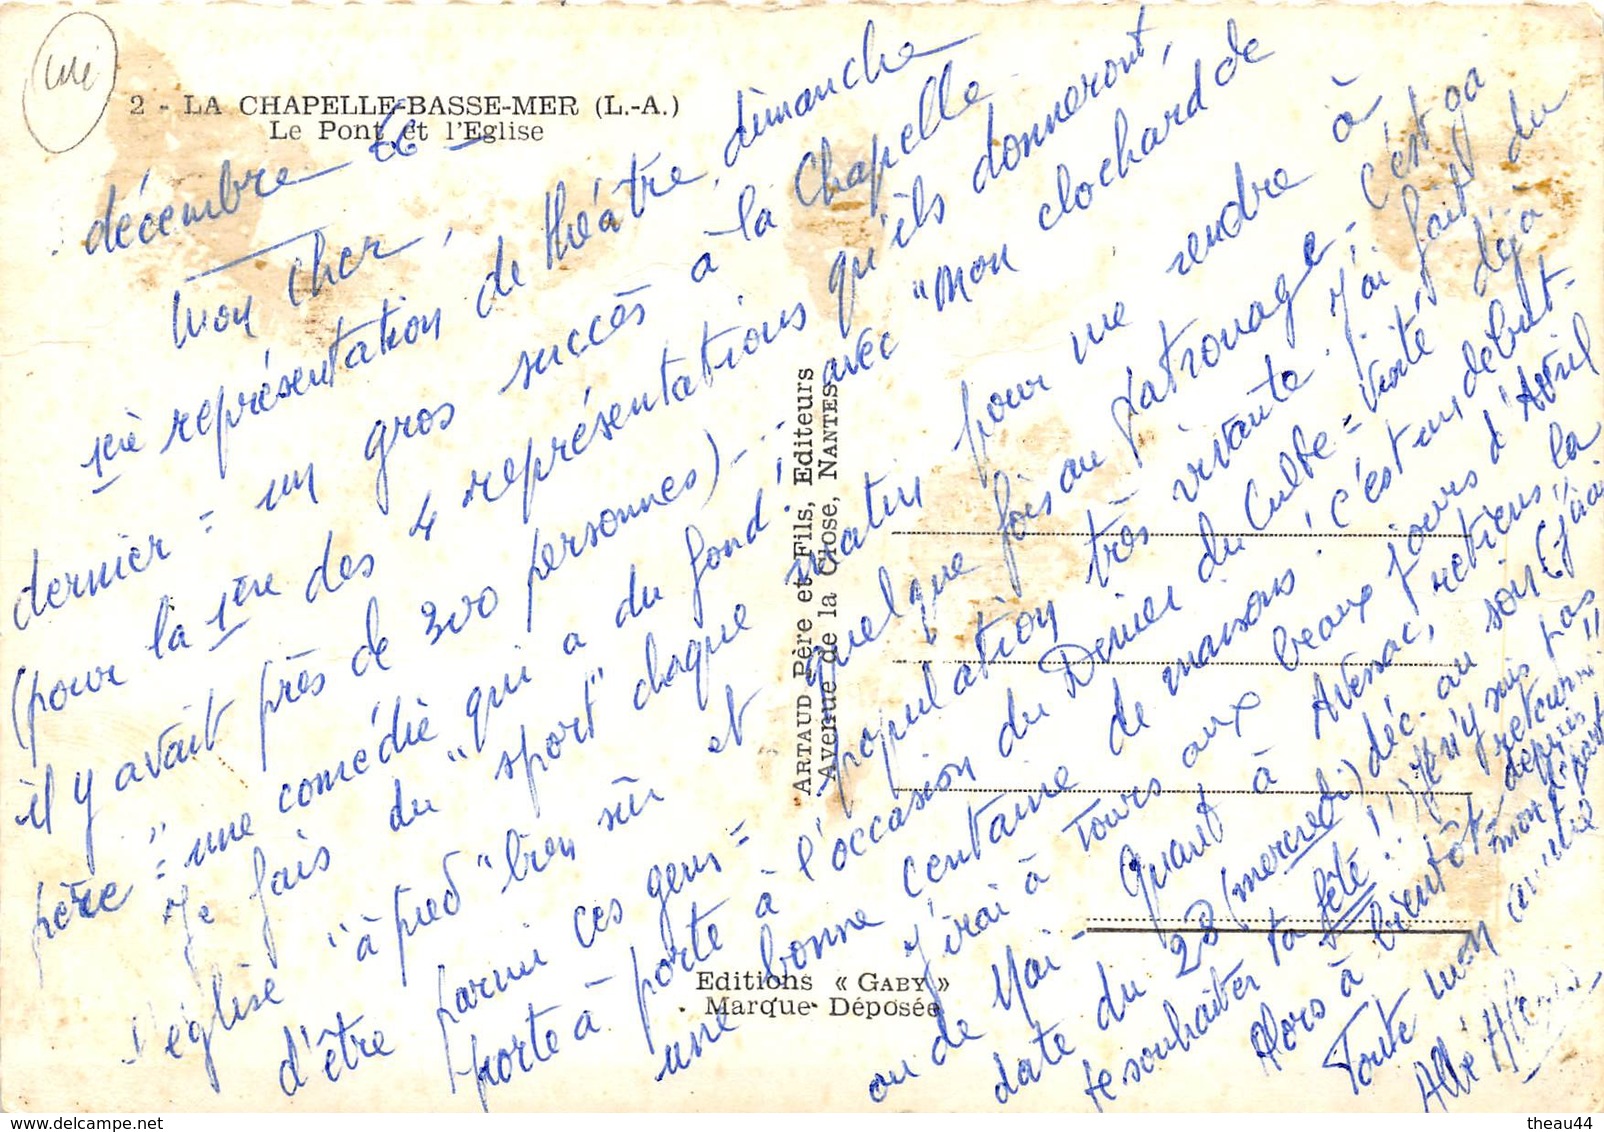 2 - LA CHAPELLE-BASSE-MER (L.-A.)
Le Pont et l'Eglise
décembre 66
Mon cher,
1ère représentation de théâtre, dimanche
dernier = un gros succès à la Chapelle
(pour la 1ère des 4 représentations qu'ils donneront,
il y avait près de 300 personnes) - avec "Mon clochard de
père" = une comédie qui a du fond!
Je fais du "sport" chaque matin pour me rendre à
l'église "à pied" bien sûr et quelque fois au patronage - c'est ça
d'être parmi ces gens = population très visitante! J'ai fait du
porte à porte à l'occasion du Denier du Culte = visité déjà
une bonne centaine de maisons! C'est un début -
J'irai à Tours aux beaux jours d'Avril
ou de Mai - Quant à Avessac, retiens la
date du 28 (mercredi) déc. au soir (j'irai
te souhaiter ta fête!!) Je n'y suis pas
retourné
depuis
mon départ!!
Alors à bientôt -
Toute mon amitié
Abbé
ARTAUD Père et Fils, Editeurs
Avenue de la Close, NANTES
Editions « GABY »
Marque Déposée
theau44